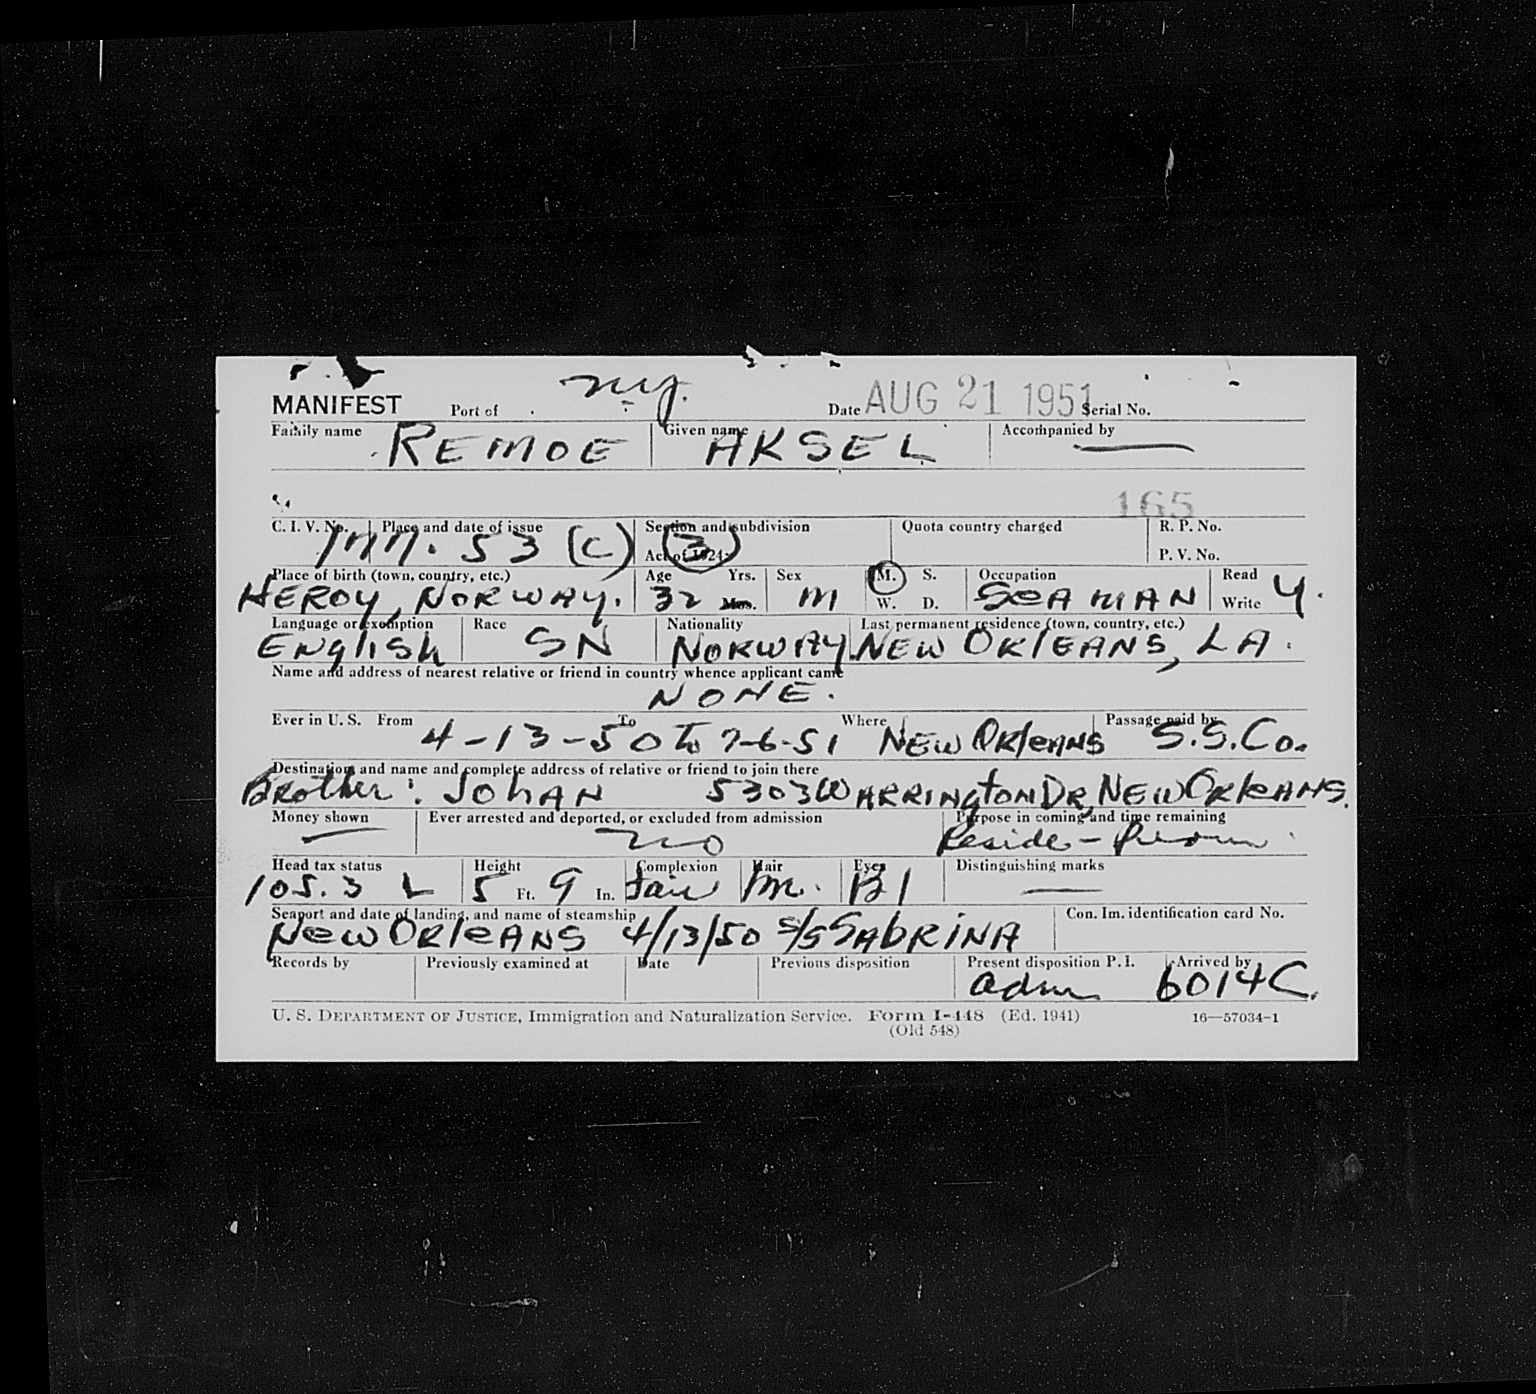 MANIFEST Port of N.Y. Date AUG 21 1951 Serial No.
Family name REMOE Given name AKSEL Accompanied by —
165
C. I. V. No. Place and date of issue Section and subdivision Quota country charged R. P. No.
Imm. 53 (C) Act of 1924: 3 P. V. No.
Place of birth (town, country, etc.) Age Yrs. Sex M. S. Occupation Read
HEROY, NORWAY. 32 Mos. M W. D. SEAMAN Write Y.
Language or exemption Race Nationality Last permanent residence (town, country, etc.)
English SN NORWAY. NEW ORlEANS, LA.
Name and address of nearest relative or friend in country whence applicant came
NONE.
Ever in U. S. From To Where Passage paid by
4-13-50 To 7-6-51 NEW ORleANS S.S.Co.
Destination, and name and complete address of relative or friend to join there
Brother: JohAN 5303 WARRINgtoN DR, NEW ORleANS.
Money shown Ever arrested and deported, or excluded from admission Purpose in coming and time remaining
— no Reside - Perm
Head tax status Height Complexion Hair Eyes Distinguishing marks
105.3 L 5 Ft. 9 In. fair Bl —
Seaport and date of landing, and name of steamship Con. Im. identification card No.
NEW ORleANS 4/13/50 S/S SAbRiNA
Records by Previously examined at Date Previous disposition Present disposition P. I. Arrived by
adm 6014C.
U. S. DEPARTMENT OF JUSTICE, Immigration and Naturalization Service. Form I-448 (Ed. 1941) 16—57034-1
(Old 548)